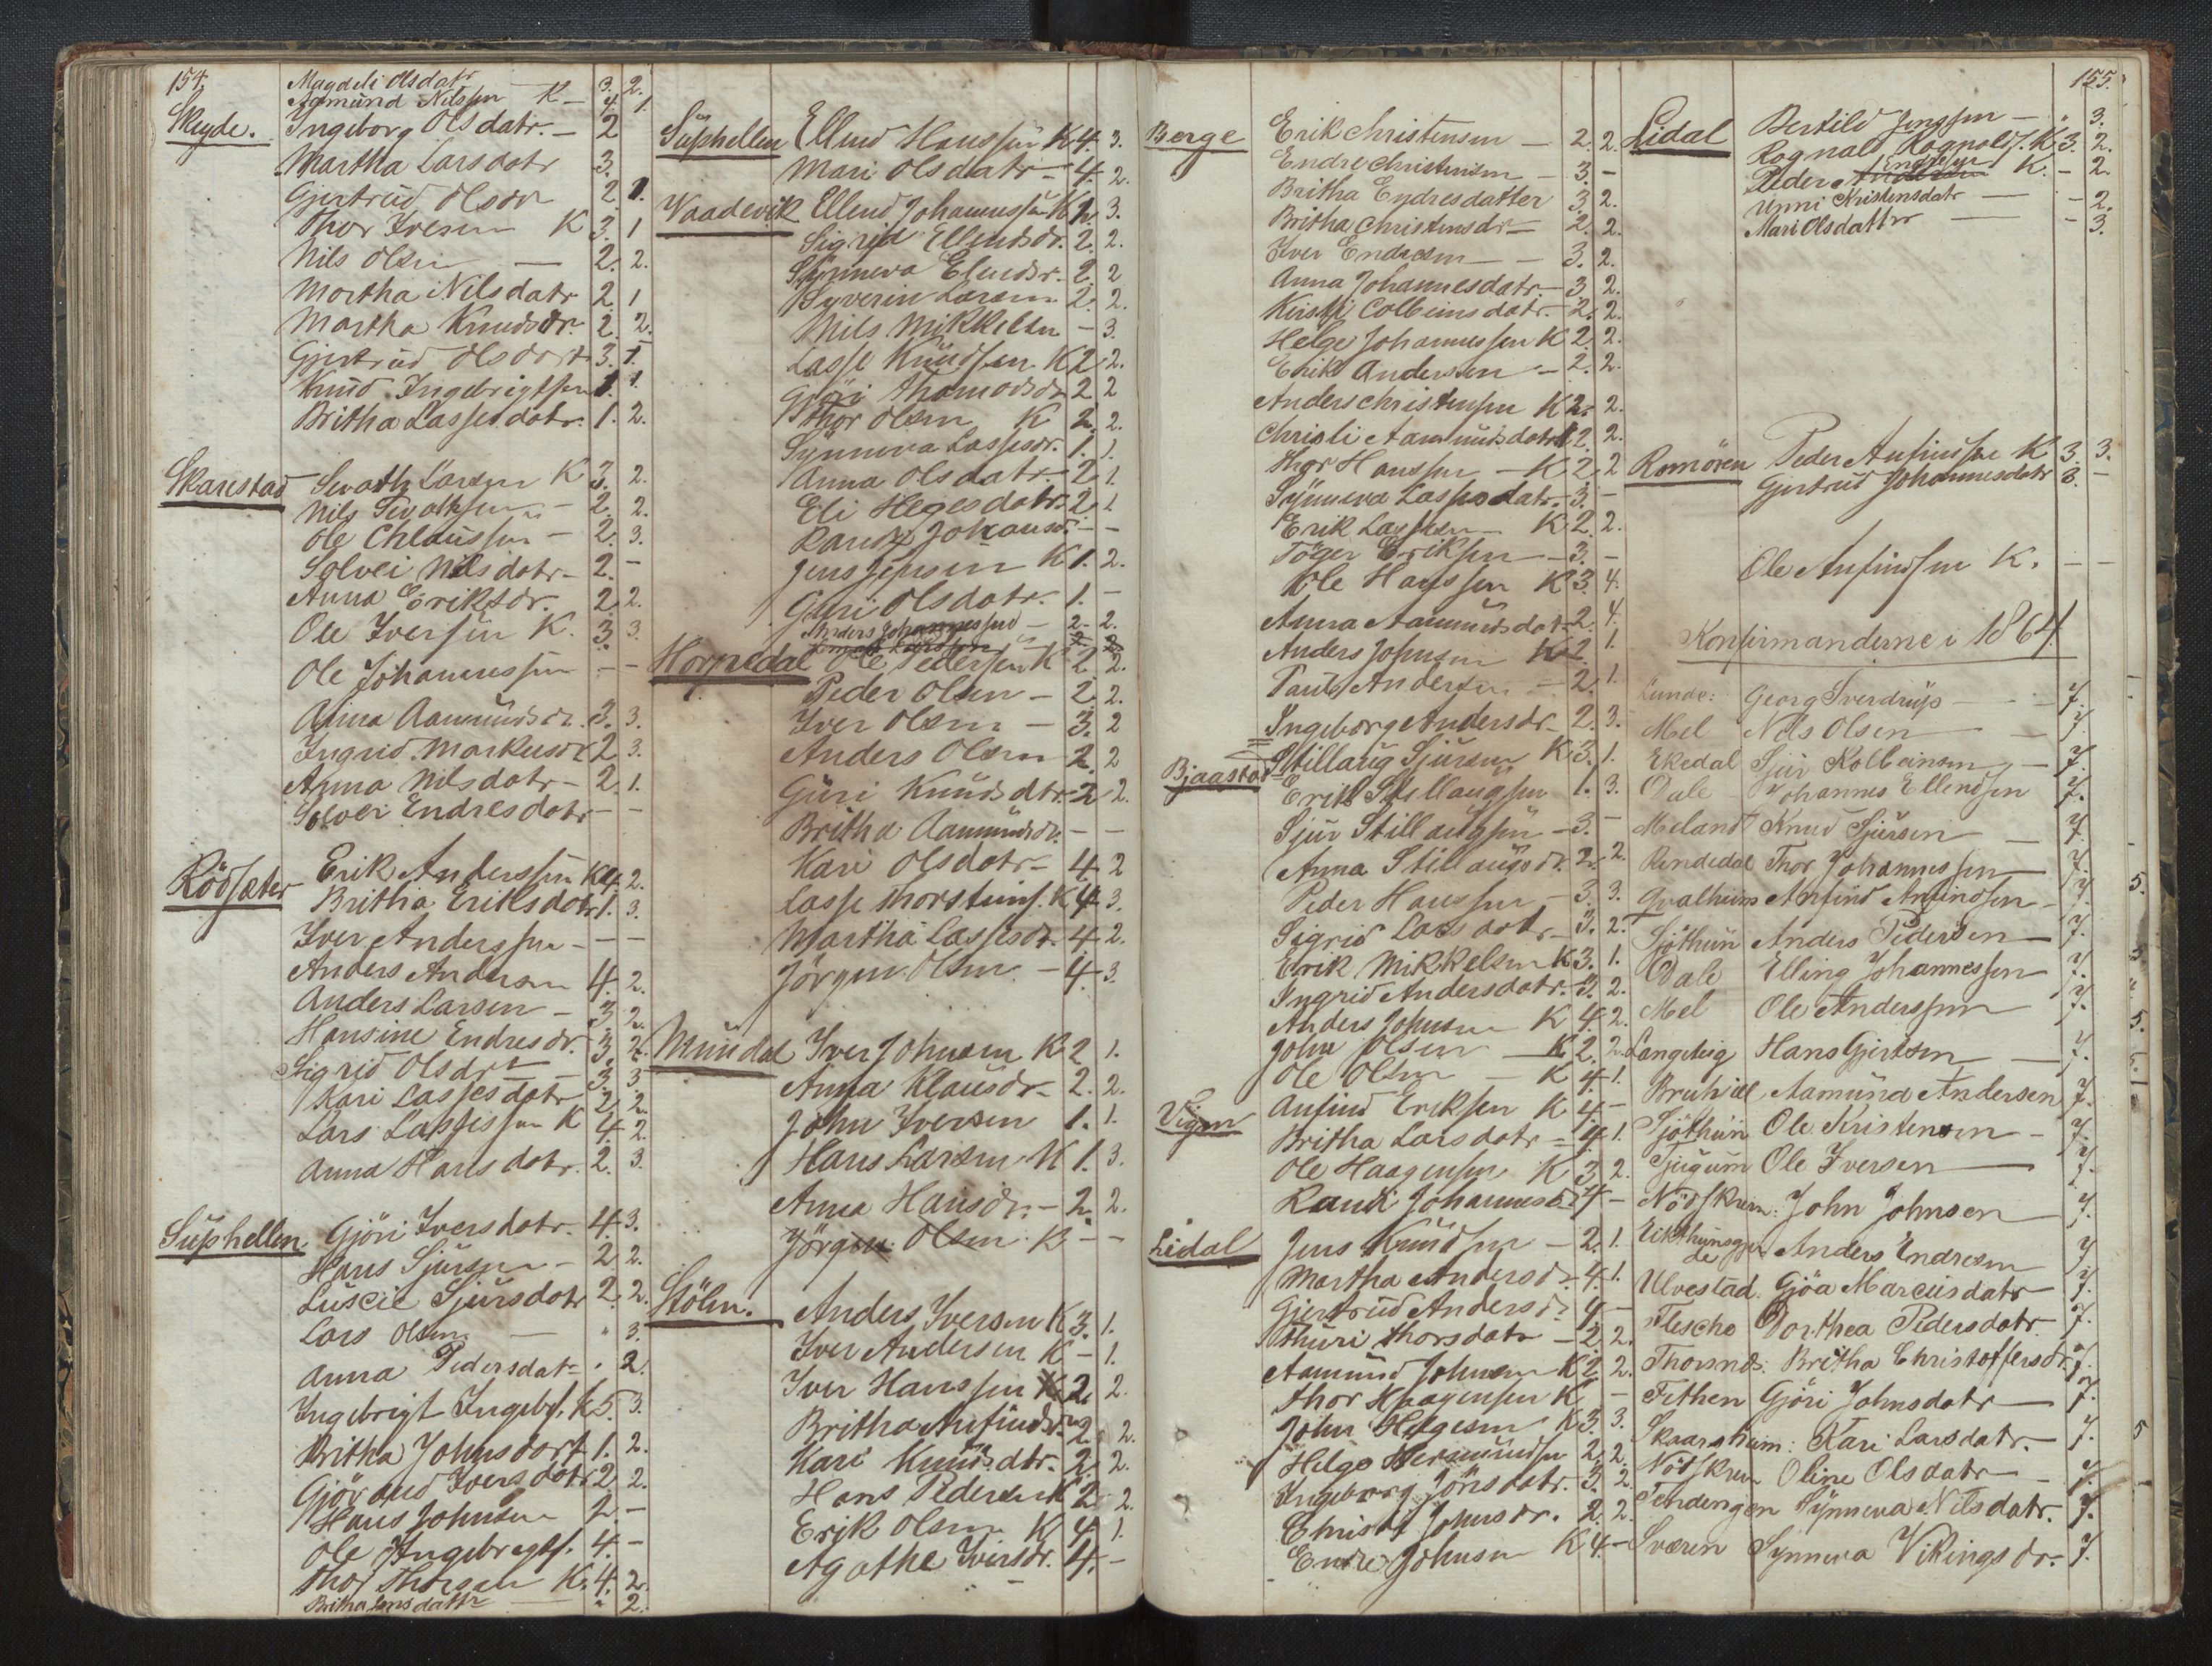 154.
Magdeli Olsdatr — 3. 2.
Aamund Nilssen K — 4. 1.
Skeyde. Ingeborg Olsdatr. — 2
Martha Larsdatr 3.
Gjertrud Olsdr 2 1.
Thor Ivesen K 3. 1
Nils Olsen — 2. 2.
Martha Nilsdatr 2 1
Martha Knudsdr. 2. 2.
Gjertrud Olsdatr 3. 1.
Knud Ingebrigtsen 1. 1.
Britha Lassesdatr. 1. 2.
Skarestad Sivath Larsen K 3. 2.
Nils Sivathsen — 2. 2.
Ole Chlaussen — 2. 3.
Solvei Nilsdatr — 2. —
Anna Eriksdr. 2. 2.
Ole Iversen K. 3. 3.
Ole Johannessen — —
Anna Aamundsdr. 3. 3.
Ingrid Markusdr 2 3.
Anna Nilsdatr — 2. 1.
Solvei Endresdatr — —
Rödsæter Erik Anderssen K 4. 2.
Britha Eriksdatr 1. 3.
Iver Anderssen — — —
Anders Andersen 4. 2.
Anders Larsen — 3 2.
Hansine Endresdr. 3. 2.
Sigrid Olsdr — 3. 3.
Kari Lassesdatr 2. 2.
Lars Lassessen K 4. 2.
Anna Hansdatr. 2. 3.
Suphellen. Gjöri Iversdatr. 4. 3.
Hans Sjursen — 2. 2.
Luscie Sjursdatr 2. 2.
Lars Olsen — " 3.
Anna Pedersdatr " 2
Ingebrigt Ingebr. K 5. 3.
Britha Johnsdatr 1. 2.
Gjörand Iversdatr 2. 2.
Hans Johnsen 2. —
Ole Ingebrigts. 4. —
Thor Thorsen K. 4. 2.
Britha Jensdattr — " 2.
Suphellen Ellend Hanssen K 4. 3.
Mari Olsdatr — 4. 2.
Vaadevik Ellend Johannessen K 2. 3.
Sigrid Ellendsdr. 2. 2.
Synneva Elendsdr. 2. 2
Syverin Larsen 2. 2.
Nils Mikkelsen — 3.
Lasse Knudsen K 2 2.
Gjöri Thomasdr 2 2
Thor Olsen K 2. 2.
Synneva Lassesdr. 1. 1.
Anna Olsdatr. 2. 1.
Eli Hegesdatr. 2. 1
Randi Johansdr. — —
Jens Jensen K 1. 2.
Guri Olsdatr. 1. —
Anders Johannessen — 2. 2.
Horpedal Ole Pedersen K 2. 2.
Peder Olsen — 2. 2.
Iver Olsen — 3. 2
Anders Olsen 2. 2
Guri Knudsdtr. 2 2.
Britha Aamundsdr. — —
Kari Olsdatr — 4. 2
Lasse Thorsteins. K 4. 3.
Martha Lassesdr. 4. 2.
Jörgen Olsen — 4. 3.
Mundal Iver Johnsen K 2 1.
Anna Klausdr — 2. 2.
John Iversen 1. 1.
Hans Larsen K 1. 3.
Anna Hansdr. — 2. 2.
Jörgen Olsen K — —
Stölen. Anders Iversen K 3. 1.
Iver Andersen K — 1.
Iver Hanssen K 2. 2.
Britha Anfindsdr 2. 2.
Kari Knudsdtr. 2. 2.
Hans Pedersen K 2. 2
Erik Olsen K 4. 1.
Agathe Iversdr. 4. —
155.
Berge Erik Christensen — 2. 2.
Endre Christensen — 3. —
Britha Endresdatter 3. 2.
Britha Christensdr — 2. 2.
Iver Endresen — — 3. 2.
Anna Johannesdatr. — 3 2.
Kirsti Colbeinsdatr. — 2. 2.
Helge Johannessen K 2 2.
Erik Andersen — 2. 2.
Anders Christensen K 2. 2.
Christi Aamundsdatr 2. 2.
Thor Hanssen — K 2. 2
Synneva Lassesdatr. — 3 —
Erik Lassesen — K 2. 2.
Töger Eriksen — 3. —
Ole Hanssen K 3. 4.
Anna Aamundsdatr 2. 4.
Anders Johnsen K 2. 1.
Paul Andersen — 2. 1.
Ingeborg Andersdr — 2. 3.
Bjaastad Stillaug Sjursen K 3. 1.
Erik Stillaugsen 1. 3.
Sjur Stillaugsen — 3. —
Anna Stillaugsdr. 2. 2.
Peder Hanssen — 3. 3.
Sigrid Larsdatr — 3. 2.
Erik Mikkelsen K 3. 1.
Ingrid Andersdatr. 3. 2.
Anders Johnsen K 4. 2.
John Olsen — K 2. 2.
Ole Olsen — K 4. 1.
Vigen Anfind Eriksen K 4. —
Britha Larsdatr — 4. 1.
Ole Haagensen K 3. 2.
Randi Johannesd. 4 —
Lidal Jens Knudsen — 2. 1.
Martha Andersdr. 4. 1.
Gjertrud Andersdr 4 —
Thuri Thorsdatr — 2. 2.
Aamund Johnsen K 2. 2.
Thor Haagensen K —
John Helgesen K 3. 3.
Helge Hermundsen 2. 2.
Ingeborg Jönsdatr. 3. 2.
Christi Johnsdr. 2. 2.
Endre Johnsen K 4. —
Lidal Bertild Jenssen — " 3.
Rognald Rognalds. K 3. 2.
Peder Endresen K. — 2.
Unni Kristensdatr — — 2.
Mari Olsdattr — — 3.
Romören Peder Anfindsen K 3. 3.
Gjertrud Johannesdatr 3. —
Ole Anfindsen K. — —
Konfirmanderne i 1864.
Lunde: Georg Sverdrup — 7.
Mel Nils Olsen — 7.
Ekedal Sjur Kolbeinsen — 7.
Dale Johannes Ellendsen 7.
Meland Knud Sjursen — 7.
Rendedal Thor Johannessen — 7.
Qvalheim Anfind Anfindsen — 7. 5.
Sjöthun Anders Pedersen — 7.
Dale Elling Johannessen — 7.
Mel Ole Anderssen 7.
Langeteig Hans Gjertsen — 7.
Aamund Andersen 7.
Sjöthun Ole Kristensen — 7.
Tjugum Ole Iversen — 7.
Nödskrein: John Johnsen — 7.
Anders Endresen 7
Ulvestad. Gjöa Marcusdatr — 7.
Flesche Dorthea Pedersdatr 7.
Thorsnes: Britha Christoffersdr. 7.
Fethen Gjöri Johnsdatr — 7.
Skaarsheim: Kari Larsdatr. — 7. 5
Nödskrein Oline Olsdatr — 7.
Tendengen Synneva Nilsdatr. 7.
Sværen Synneva Vikingsdr. 7.